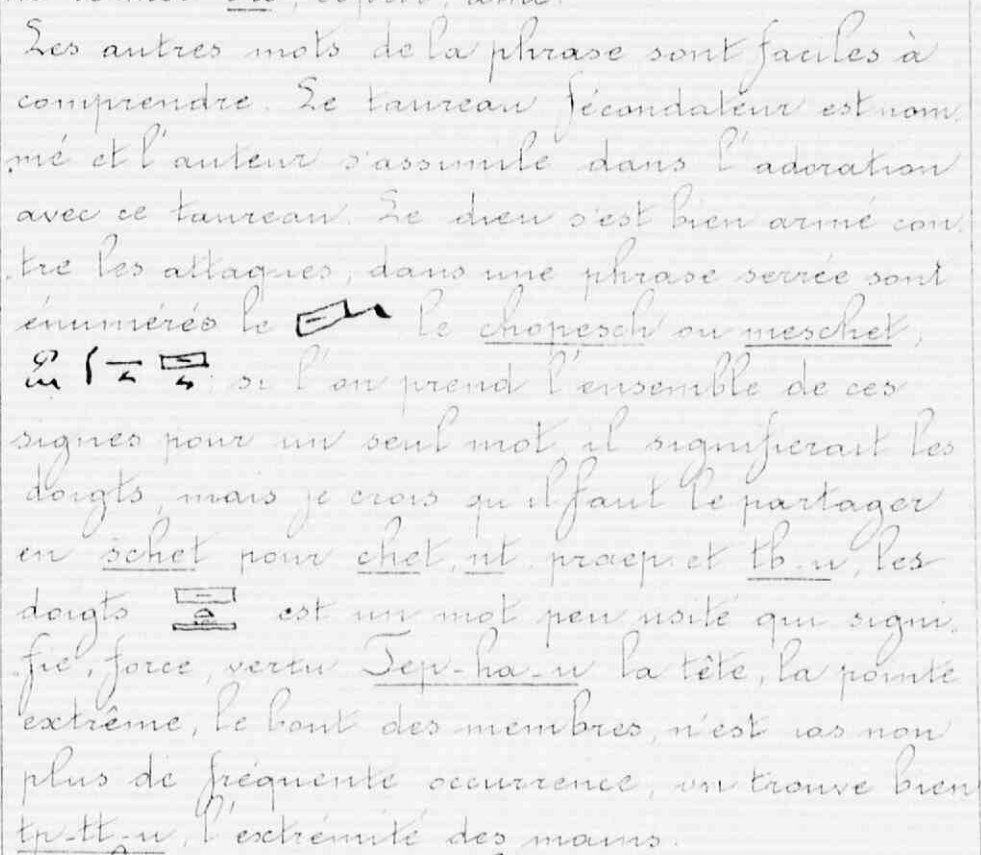 Les autres mots de la phrase sont faciles à
comprendre. Le taureau fécondateur est nom
mé et l'auteur s'assimile dans l'adoration
avec ce taureau. Le dieu s'est bien armé con
tre les attaques, dans une phrase serrée sont
énumérés le le chopesch ou meschet,
si l'on prend l'ensemble de ces
signes pour un seul mot, il signifierait les
doigts, mais je crois qu'il faut le partager
en schet pour chet, nt praep. et tb-u, les
doigts est un mot peu usité qui signi
fie, force, vertu Tep-ha-u la tête, la pointe
extrême, le bout des membres, n'est pas non
plus de fréquente occurrence, on trouve bien
tp-tt-u, l'extrémité des mains.